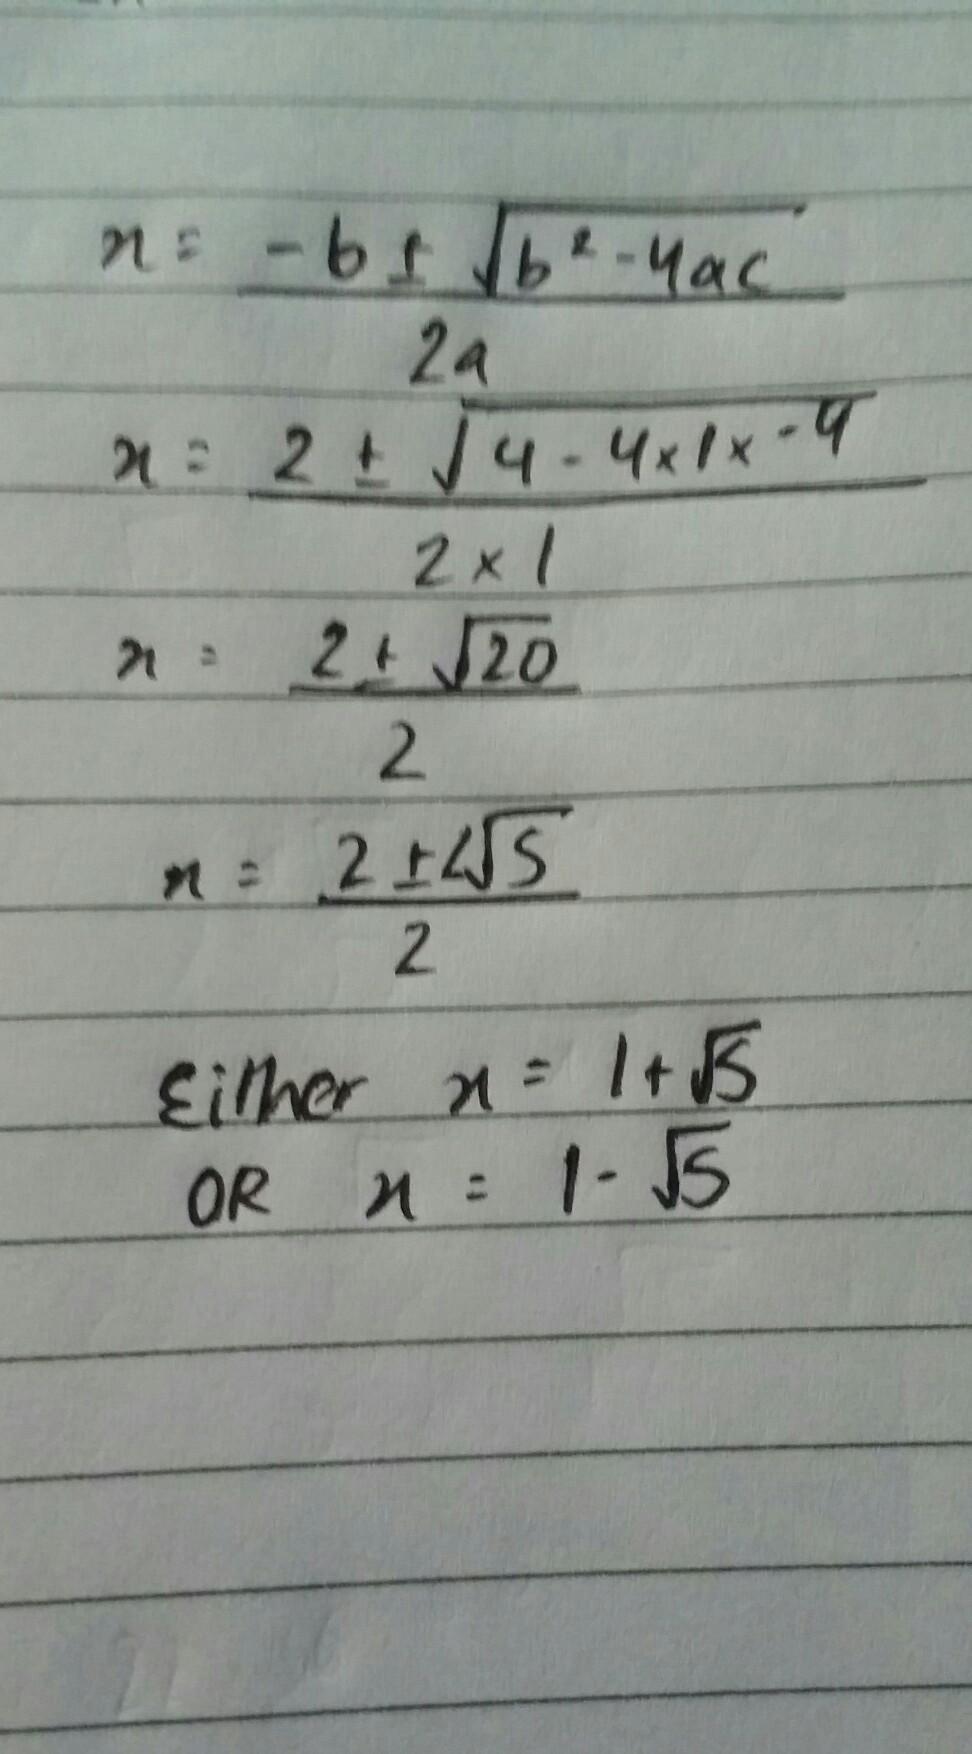 x = -b ± √b² - 4ac
2a
x = 2 ± √4 - 4×1×-4
2 × 1
x = 2 ± √20
2
x = 2 ± 2√5
2
Either x = 1 + √5
OR x = 1 - √5